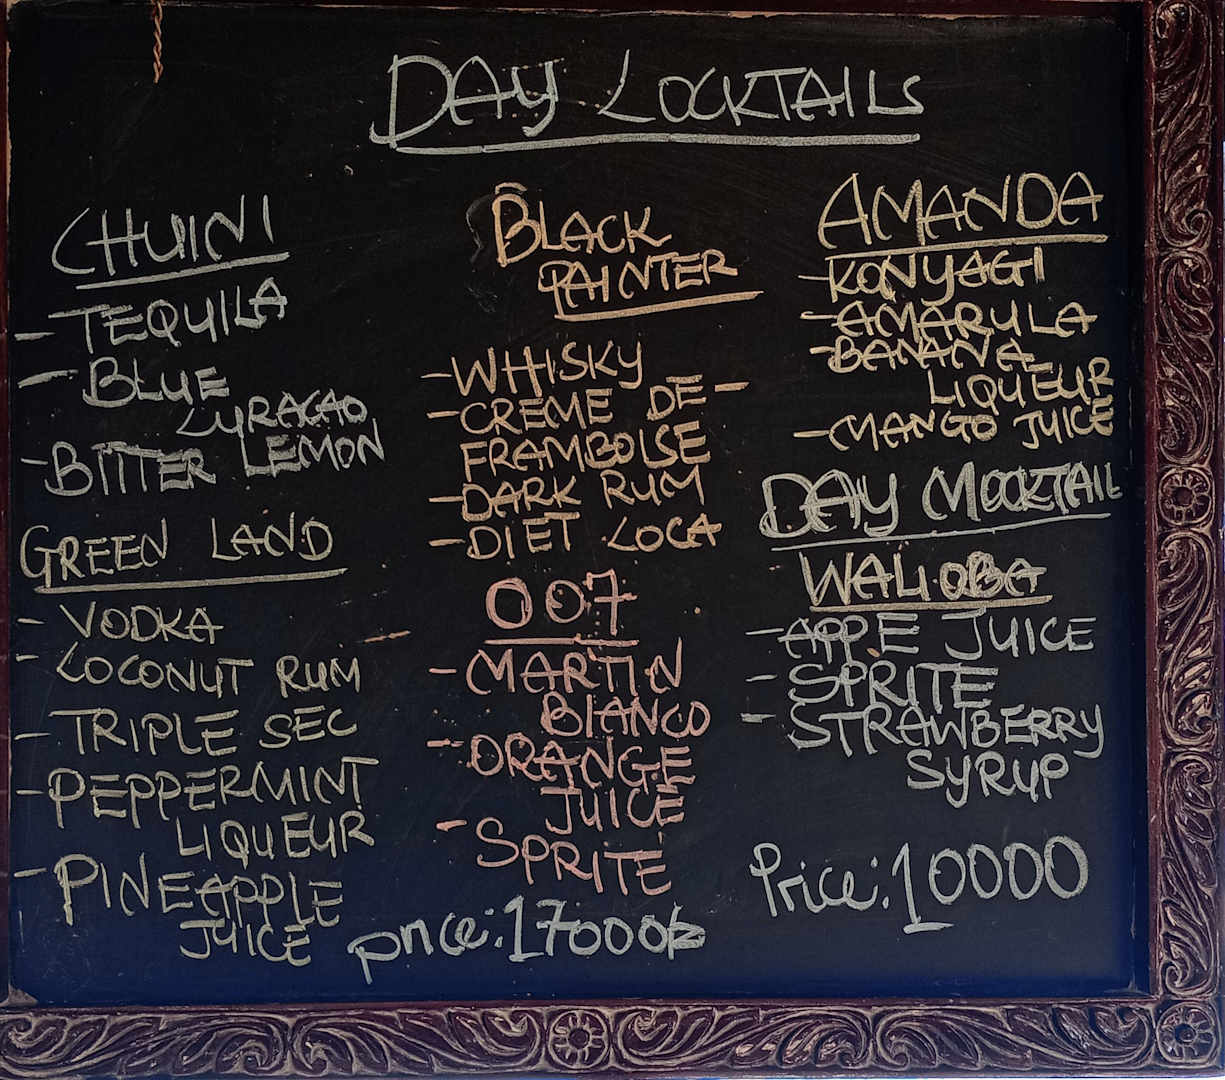 DAY COCKTAILS
CHUINI
- TEQUILA
- BLUE
CURACAO
- BITTER LEMON
GREEN LAND
- VODKA
- COCONUT RUM
- TRIPLE SEC
- PEPPERMINT
LIQUEUR
- PINEAPPLE
JUICE
BLACK
PAINTER
- WHISKY
- CREME DE -
FRAMBOISE
- DARK RUM
- DIET COCA
007
- MARTIN
BIANCO
- ORANGE
JUICE
- SPRITE
price: 17000/=
AMANDA
- KONYAGI
- AMARULA
- BANANA
LIQUEUR
- MANGO JUICE
DAY MOCKTAIL
WALIOBA
- APPE JUICE
- SPRITE
- STRAWBERRY
SYRUP
Price: 10000